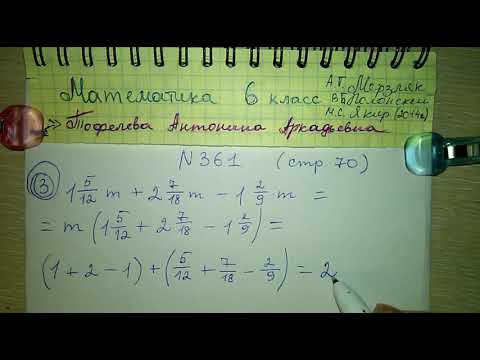 Математика 6 класс А.Г. Мерзляк
В.Б. Полонский
М.С. Якир (2014г)
Тофелева Антонина Аркадьевна
N 361 (стр. 70)
③ 1 5/12 m + 2 7/18 m - 1 2/9 m =
= m (1 5/12 + 2 7/18 - 1 2/9) =
(1 + 2 - 1) + (5/12 + 7/18 - 2/9) = 2